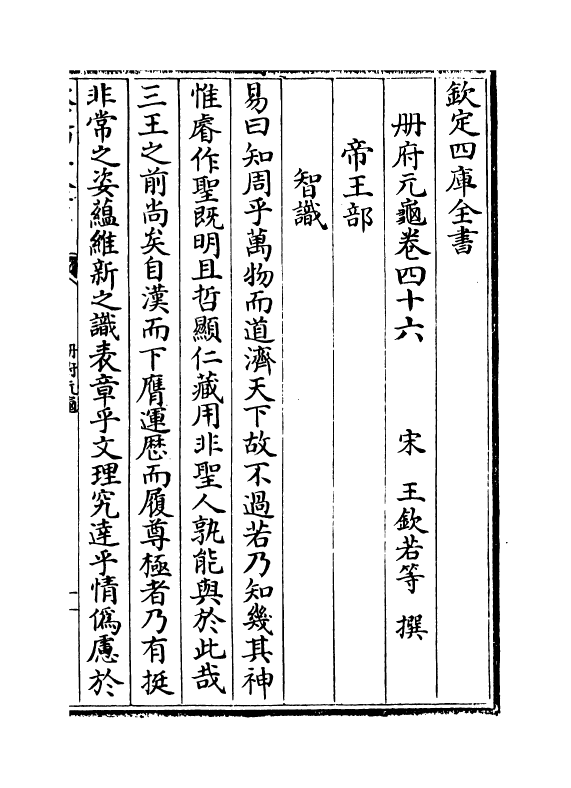 欽定四庫全書
册府元龜卷四十六　宋　王欽若等　撰
帝王部
智識
易曰知周乎萬物而道濟天下故不過若乃知幾其神
惟睿作聖既明且哲顯仁藏用非聖人孰能與於此哉
三王之前尚矣自漢而下膺運歴而履尊極者乃有挺
非常之姿蘊維新之識表章乎文理究達乎情偽慮於
册府元龜